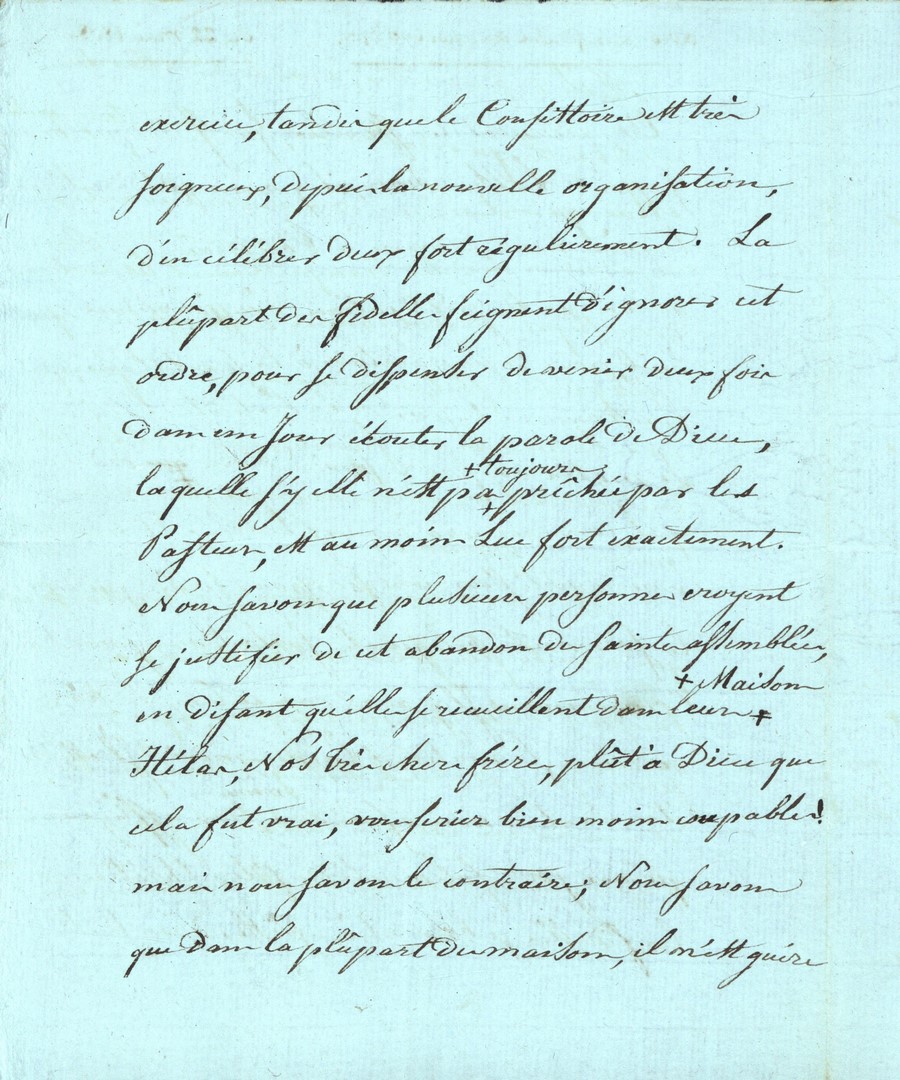 exercice, tandis que le Consistoire est très
soigneux, depuis la nouvelle organisation,
d'en célébrer deux fort régulièrement. La
plûpart des fidelles feignent d'ignorer cet
ordre, pour se dispenser de venir deux fois
dans un Jour écouter la parole de Dieu,
+ toujours
laquelle s'y elle n'est pas + prêchée par les
Pasteurs, est au moins Lue fort exactement.
Nous savons que plusieurs personnes croyent
se justifier de cet abandon des saintes assemblées,
+ Maisons
en disant qu'elles se recueillent dans leurs +
Hélas, Nos très chers frères, plût à Dieu que
cela fut vrai, vous seriez bien moins coupables!
mais nous savons le contraire; Nous savons
que dans la plûpart des maisons, il n'est guère